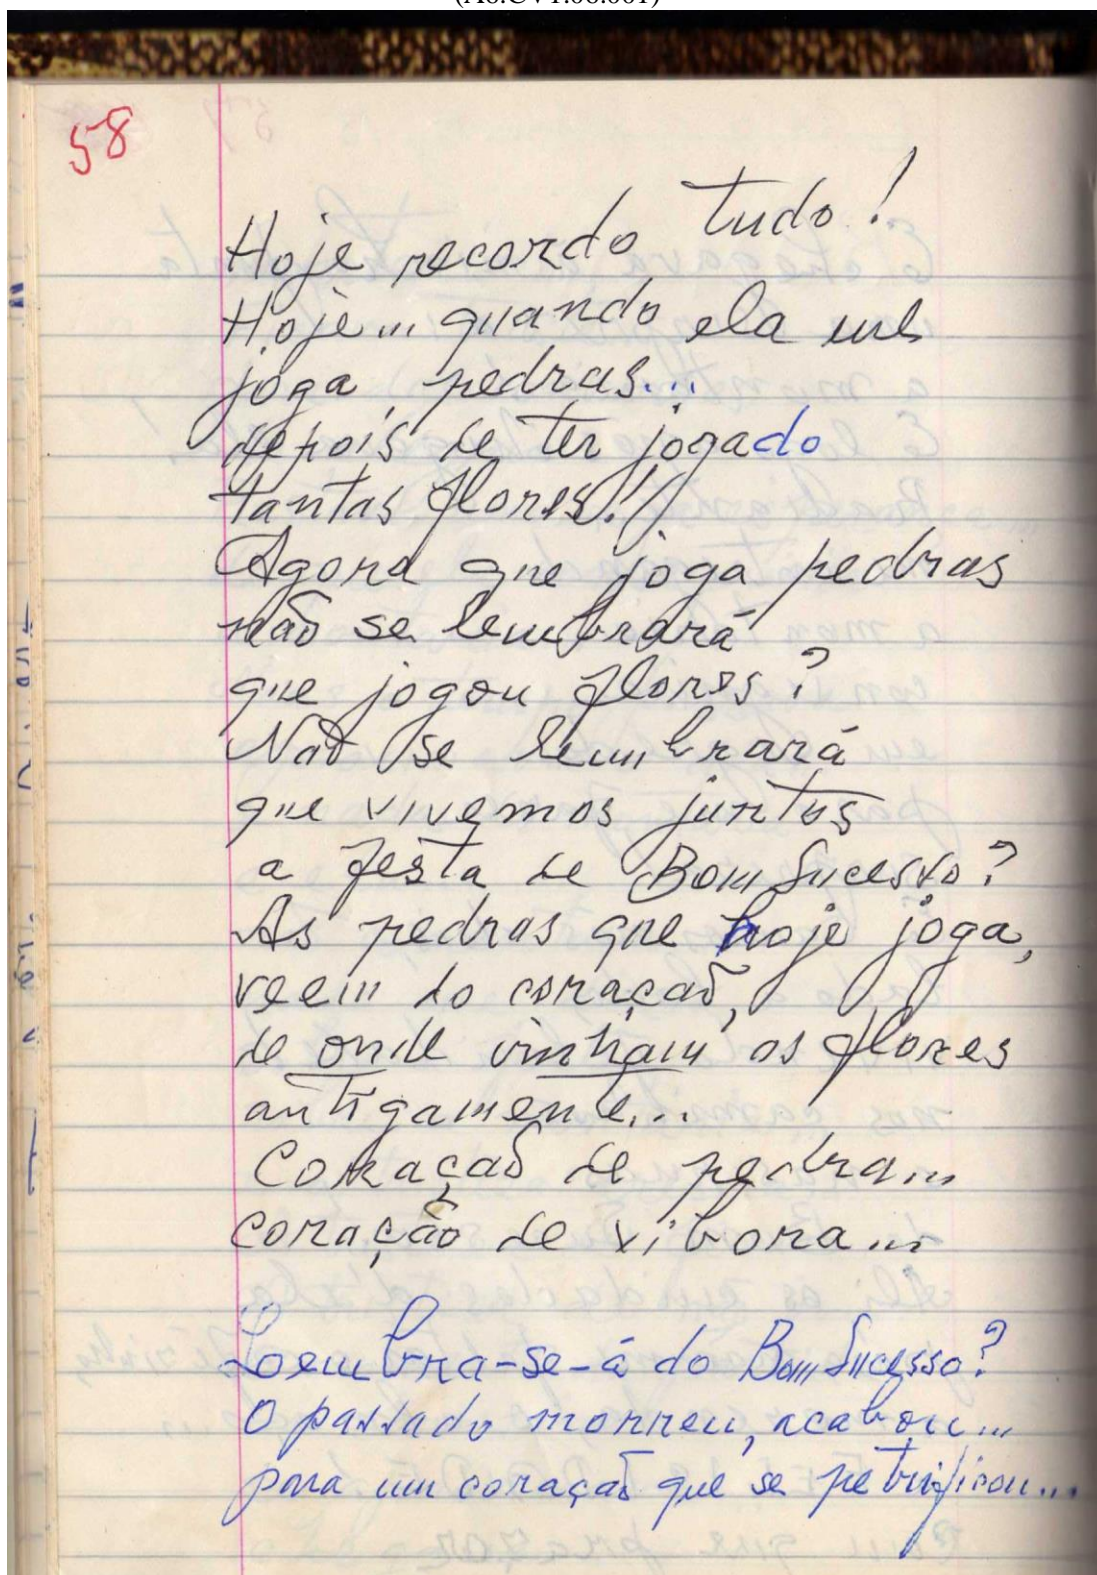 58
Hoje recordo tudo!
Hoje... quando ela me
joga pedras...
depois de ter jogado
tantas flores!
Agora que joga pedras
não se lembrará
que jogou flores?
Não se lembrará
que vivemos juntos
a festa de Bom Sucesso?
As pedras que hoje joga,
veem do coração,
de onde vinham as flores
antigamente...
Coração de pedra...
coração de vibora...
Lembra-se-á do Bom Sucesso?
O passado morreu, acabou...
para um coração que se petrificou...